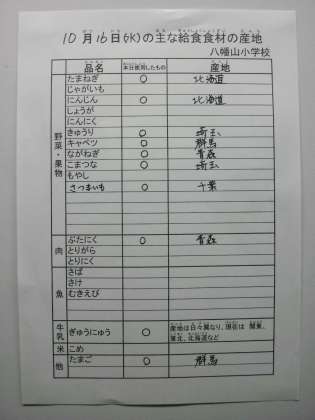 10月16日(水)の主な給食食材の産地
八幡山小学校
品名 本日使用したもの 産地
野菜・果物
たまねぎ ○ 北海道
じゃがいも
にんじん ○ 北海道
しょうが
にんにく
きゅうり ○ 埼玉
キャベツ ○ 群馬
ながねぎ ○ 青森
こまつな ○ 埼玉
もやし
さつまいも ○ 千葉
肉
ぶたにく ○ 青森
とりがら
とりにく
魚
さば
さけ
むきえび
牛乳 ぎゅうにゅう ○ 産地は日々異なり、現在は 関東、
東北、北海道など
米 こめ
他 たまご ○ 群馬